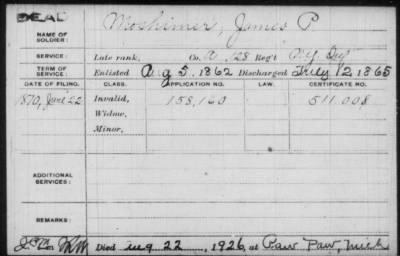 DEAD
NAME OF SOLDIER: Moshimer, James P
SERVICE: Late rank, Co. A, 128 Reg't Inf
TERM OF SERVICE: Enlisted Aug 5, 1862 Discharged July 12, 1865
DATE OF FILING. CLASS. APPLICATION NO. LAW. CERTIFICATE NO.
1870, June 22 Invalid, 158,160 511.008
Widow,
Minor,
ADDITIONAL SERVICES:
REMARKS:
Died Aug 22, 1926, at Paw Paw, Mich